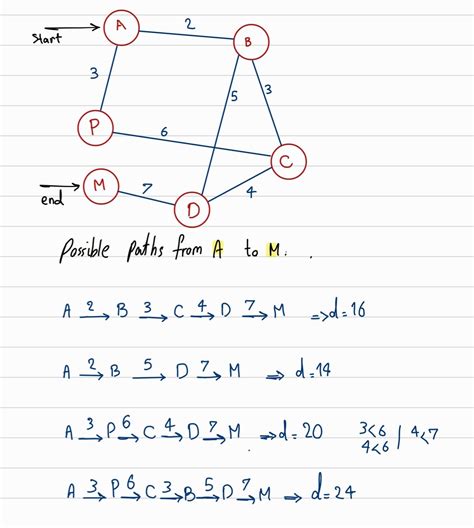 A 2 B
Start
3 5 3
P 6
C
M 7 4
end
D
Possible paths from A to M.
A 2→ B 3→ C 4→ D 7→ M ⇒d=16
A 2→ B 5→ D 7→ M ⇒ d=14
A 3→ P 6→ C 4→ D 7→ M ⇒d=20 3<6 | 4<7
4<6
A 3→ P 6→ C 3→ B 5→ D 7→ M ⇒ d=24